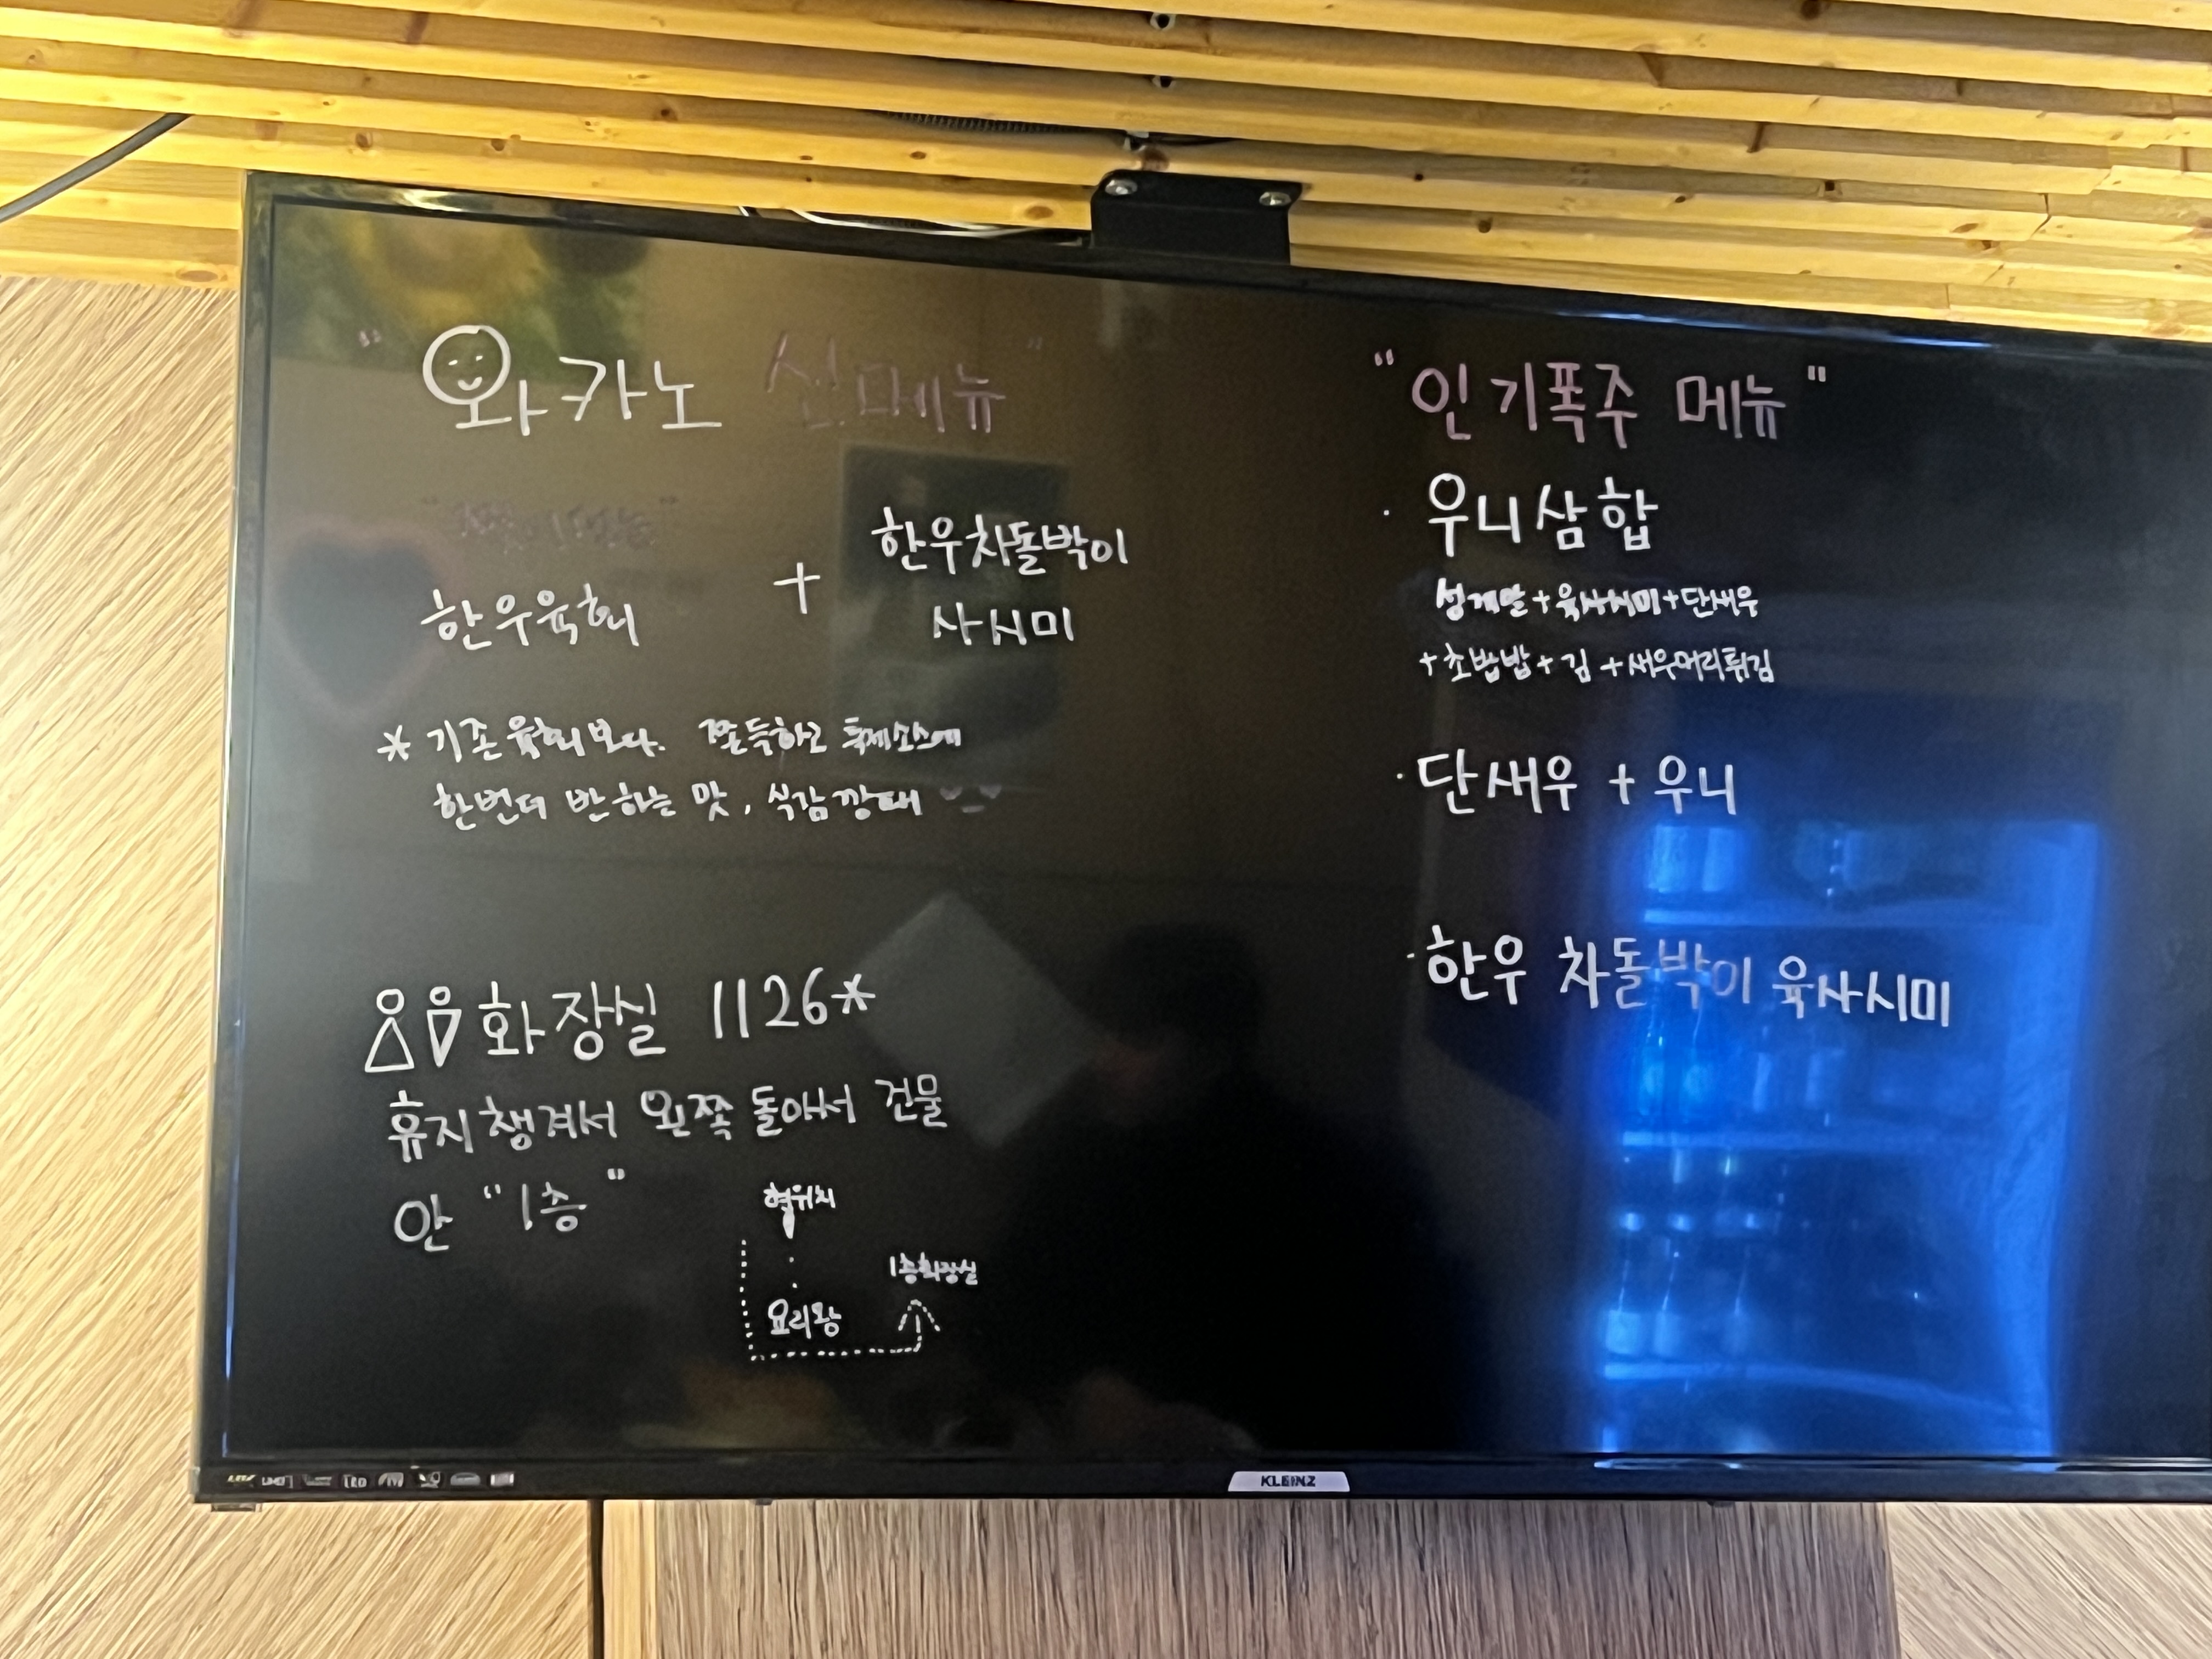 " 와카노 신메뉴 "
한우육회 + 한우차돌박이
사시미
* 기존 육회보다. 쫀득하고 특제소스에
한번더 반하는 맛, 식감깡패
화장실 1126*
휴지 챙겨서 왼쪽 돌아서 건물
안 "1층"
현위치
1층화장실
요리왕
"인기폭주 메뉴"
· 우니삼합
성게알+육사시미+단새우
+초밥밥+김+새우머리튀김
· 단새우 + 우니
· 한우 차돌박이 육사시미
KLEINZ